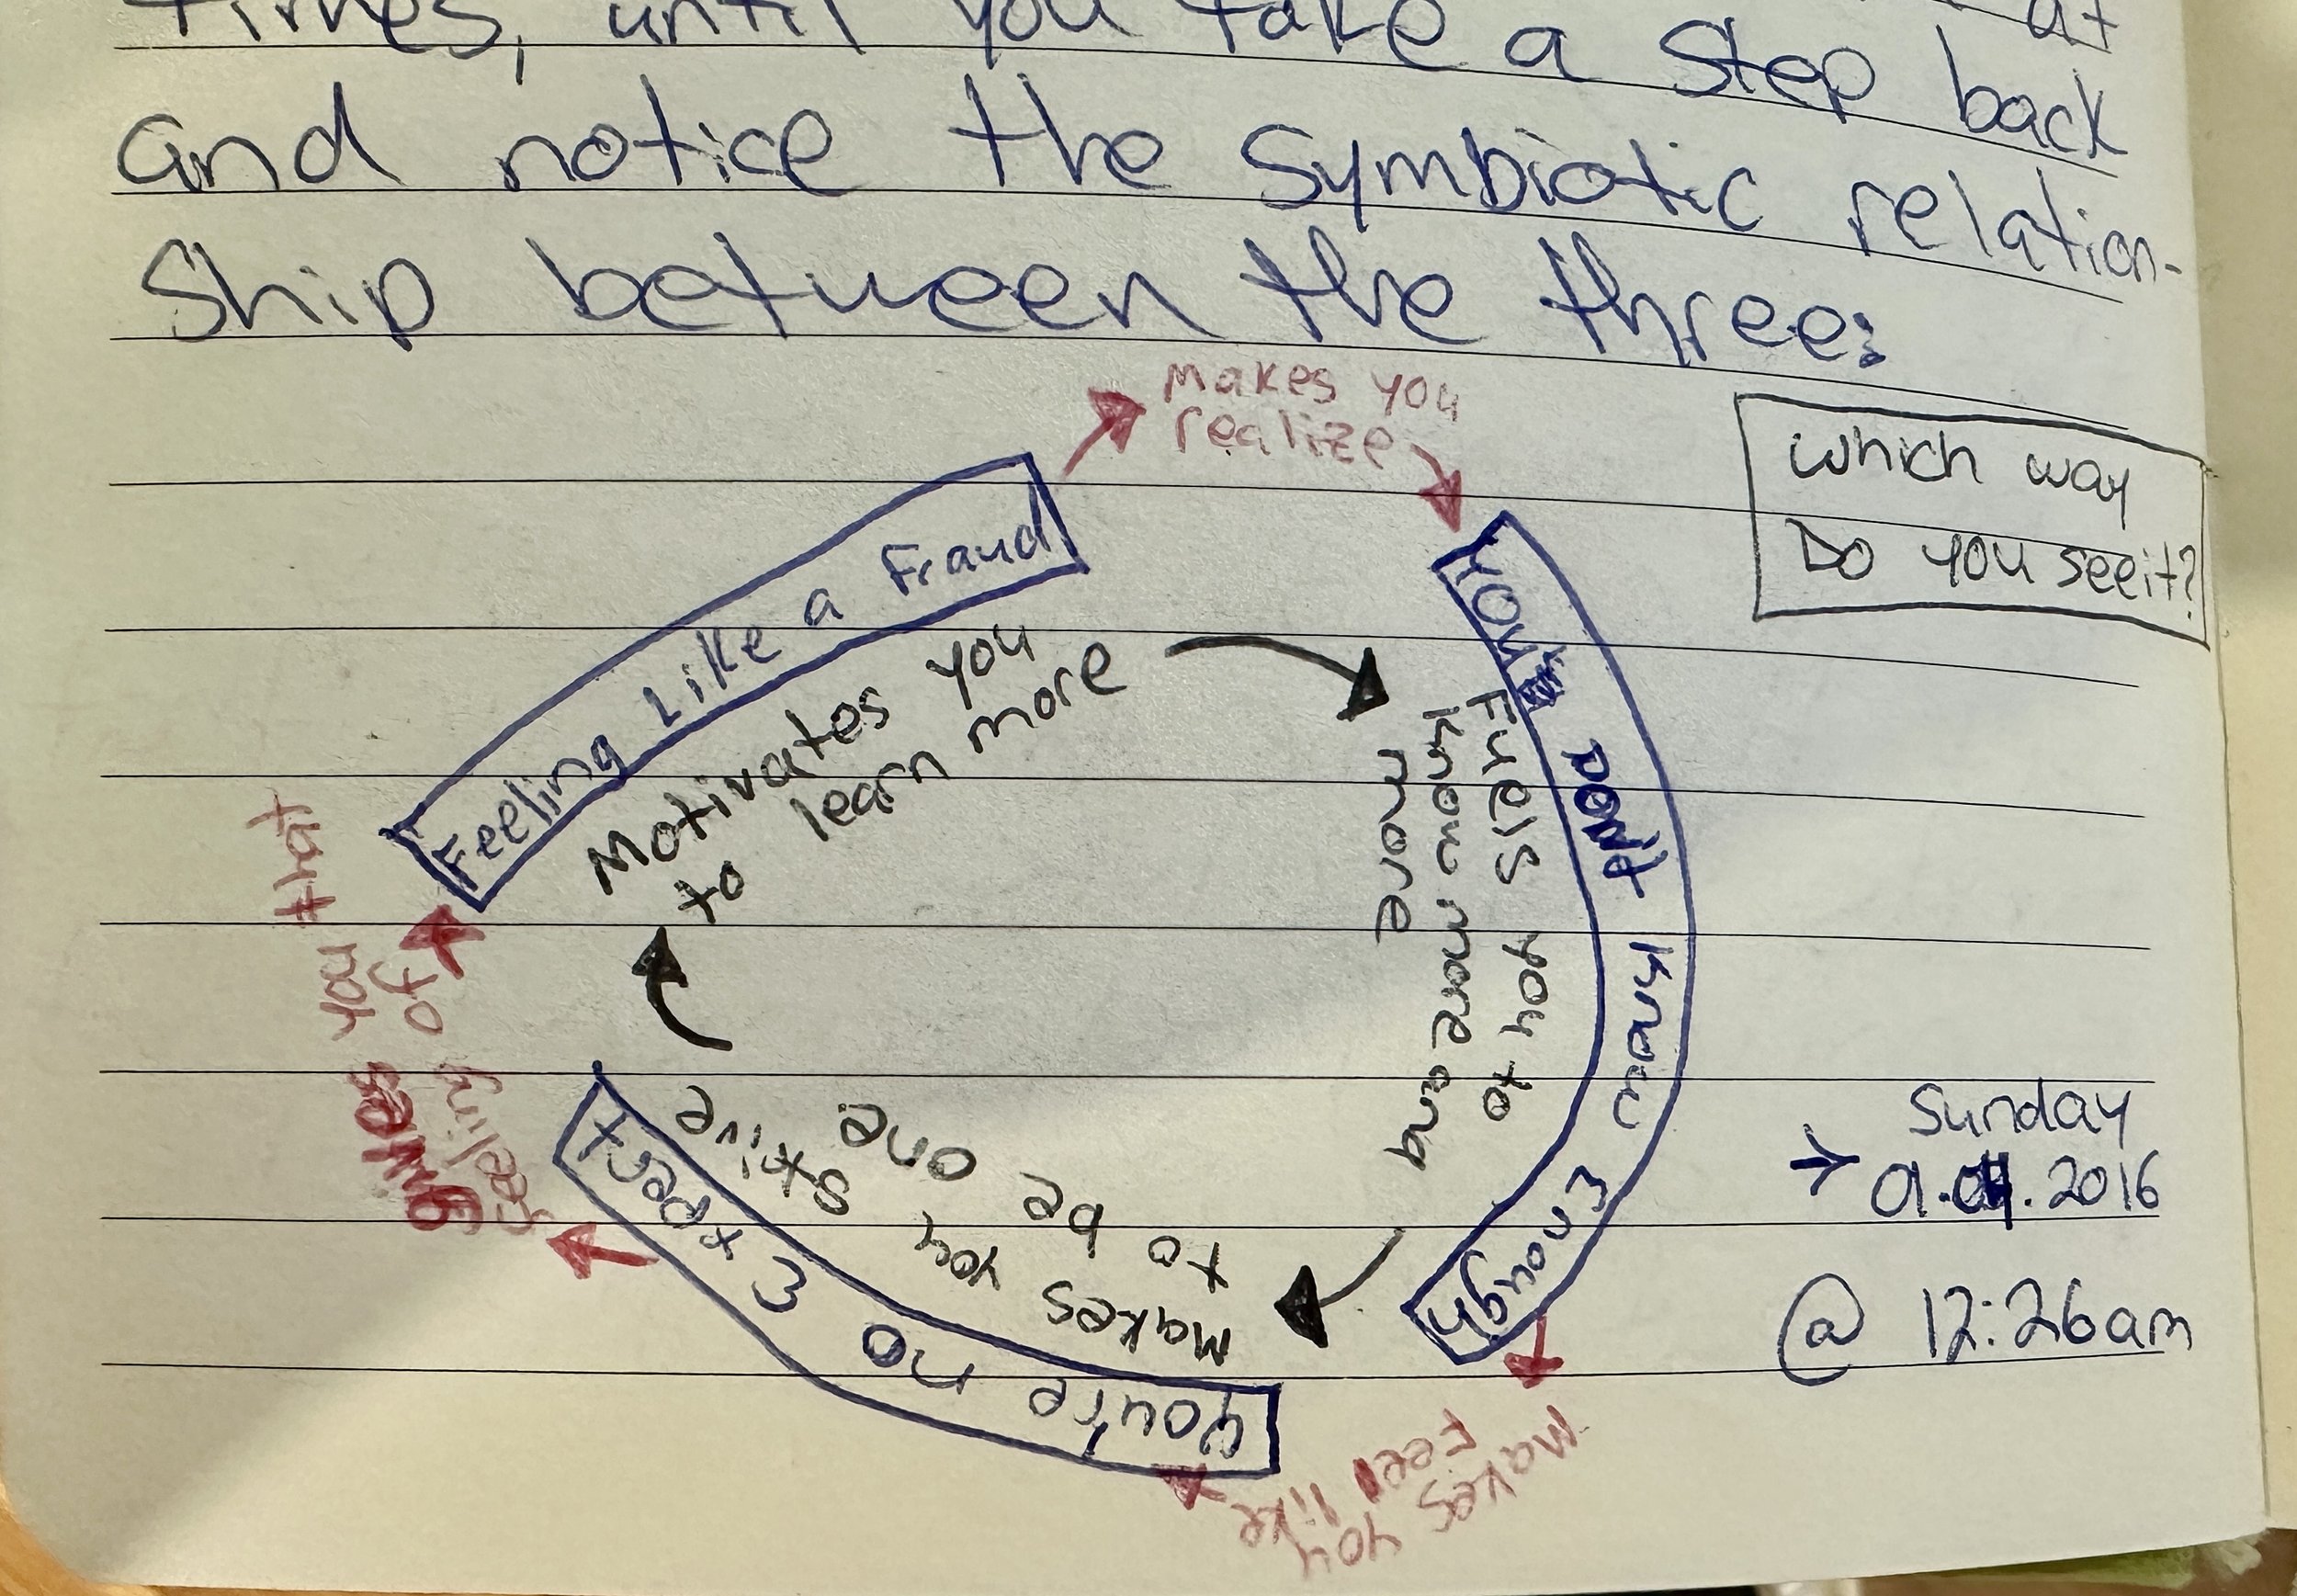 times, until you take a step back
at
and notice the symbiotic relation-
ship between the three:
makes you
realize
which way
Do you see it?
Feeling Like a Fraud
Motivates you
to learn more
You DON't Know Enough
Fuels you to
know more and
more
Makes you feel like
You're no Expect
Makes you strive
to be one
gives you that
feeling of
Sunday
→ 01..2016
@ 12:26am